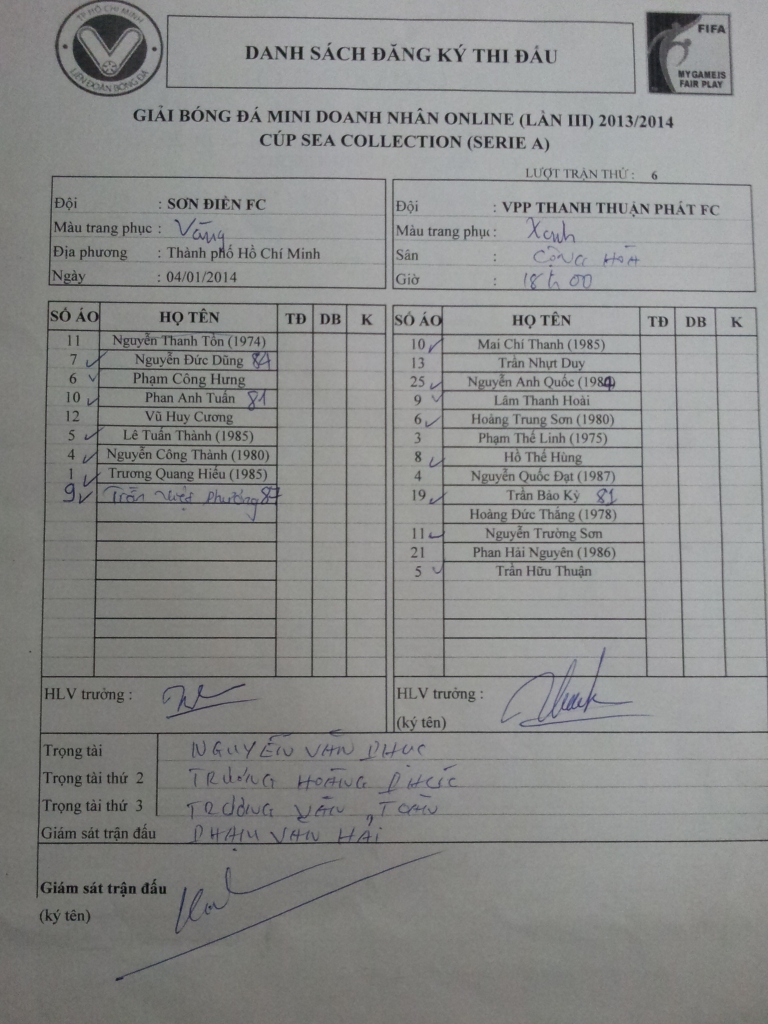 TP HỒ CHÍ MINH
LIÊN ĐOÀN BÓNG ĐÁ
DANH SÁCH ĐĂNG KÝ THI ĐẤU
FIFA
MY GAME IS
FAIR PLAY
GIẢI BÓNG ĐÁ MINI DOANH NHÂN ONLINE (LẦN III) 2013/2014
CÚP SEA COLLECTION (SERIE A)
LƯỢT TRẬN THỨ : 6
Đội : SƠN ĐIỀN FC
Màu trang phục : Vàng
Địa phương : Thành phố Hồ Chí Minh
Ngày : 04/01/2014
Đội : VPP THANH THUẬN PHÁT FC
Màu trang phục : Xanh
Sân : CỘNG HOÀ
Giờ : 18h00
SỐ ÁO HỌ TÊN TĐ DB K
11 Nguyễn Thanh Tồn (1974)
7 Nguyễn Đức Dũng 84
6 Phạm Công Hưng
10 Phan Anh Tuấn 81
12 Vũ Huy Cương
5 Lê Tuấn Thành (1985)
4 Nguyễn Công Thành (1980)
1 Trương Quang Hiếu (1985)
9 Trần Phương 87
HLV trưởng :
SỐ ÁO HỌ TÊN TĐ DB K
10 Mai Chí Thanh (1985)
13 Trần Nhựt Duy
25 Nguyễn Anh Quốc (1984)
9 Lâm Thanh Hoài
6 Hoàng Trung Sơn (1980)
3 Phạm Thế Linh (1975)
8 Hồ Thế Hùng
4 Nguyễn Quốc Đạt (1987)
19 Trần Bảo Kỳ 81
Hoàng Đức Thắng (1978)
11 Nguyễn Trường Sơn
21 Phan Hải Nguyên (1986)
5 Trần Hữu Thuận
HLV trưởng :
(ký tên)
Trọng tài NGUYỄN VĂN PHÚC
Trọng tài thứ 2 TRƯƠNG HOÀNG PHÚC
Trọng tài thứ 3 TRƯƠNG VĂN TOẢN
Giám sát trận đấu PHẠM VĂN HẢI
Giám sát trận đấu
(ký tên)